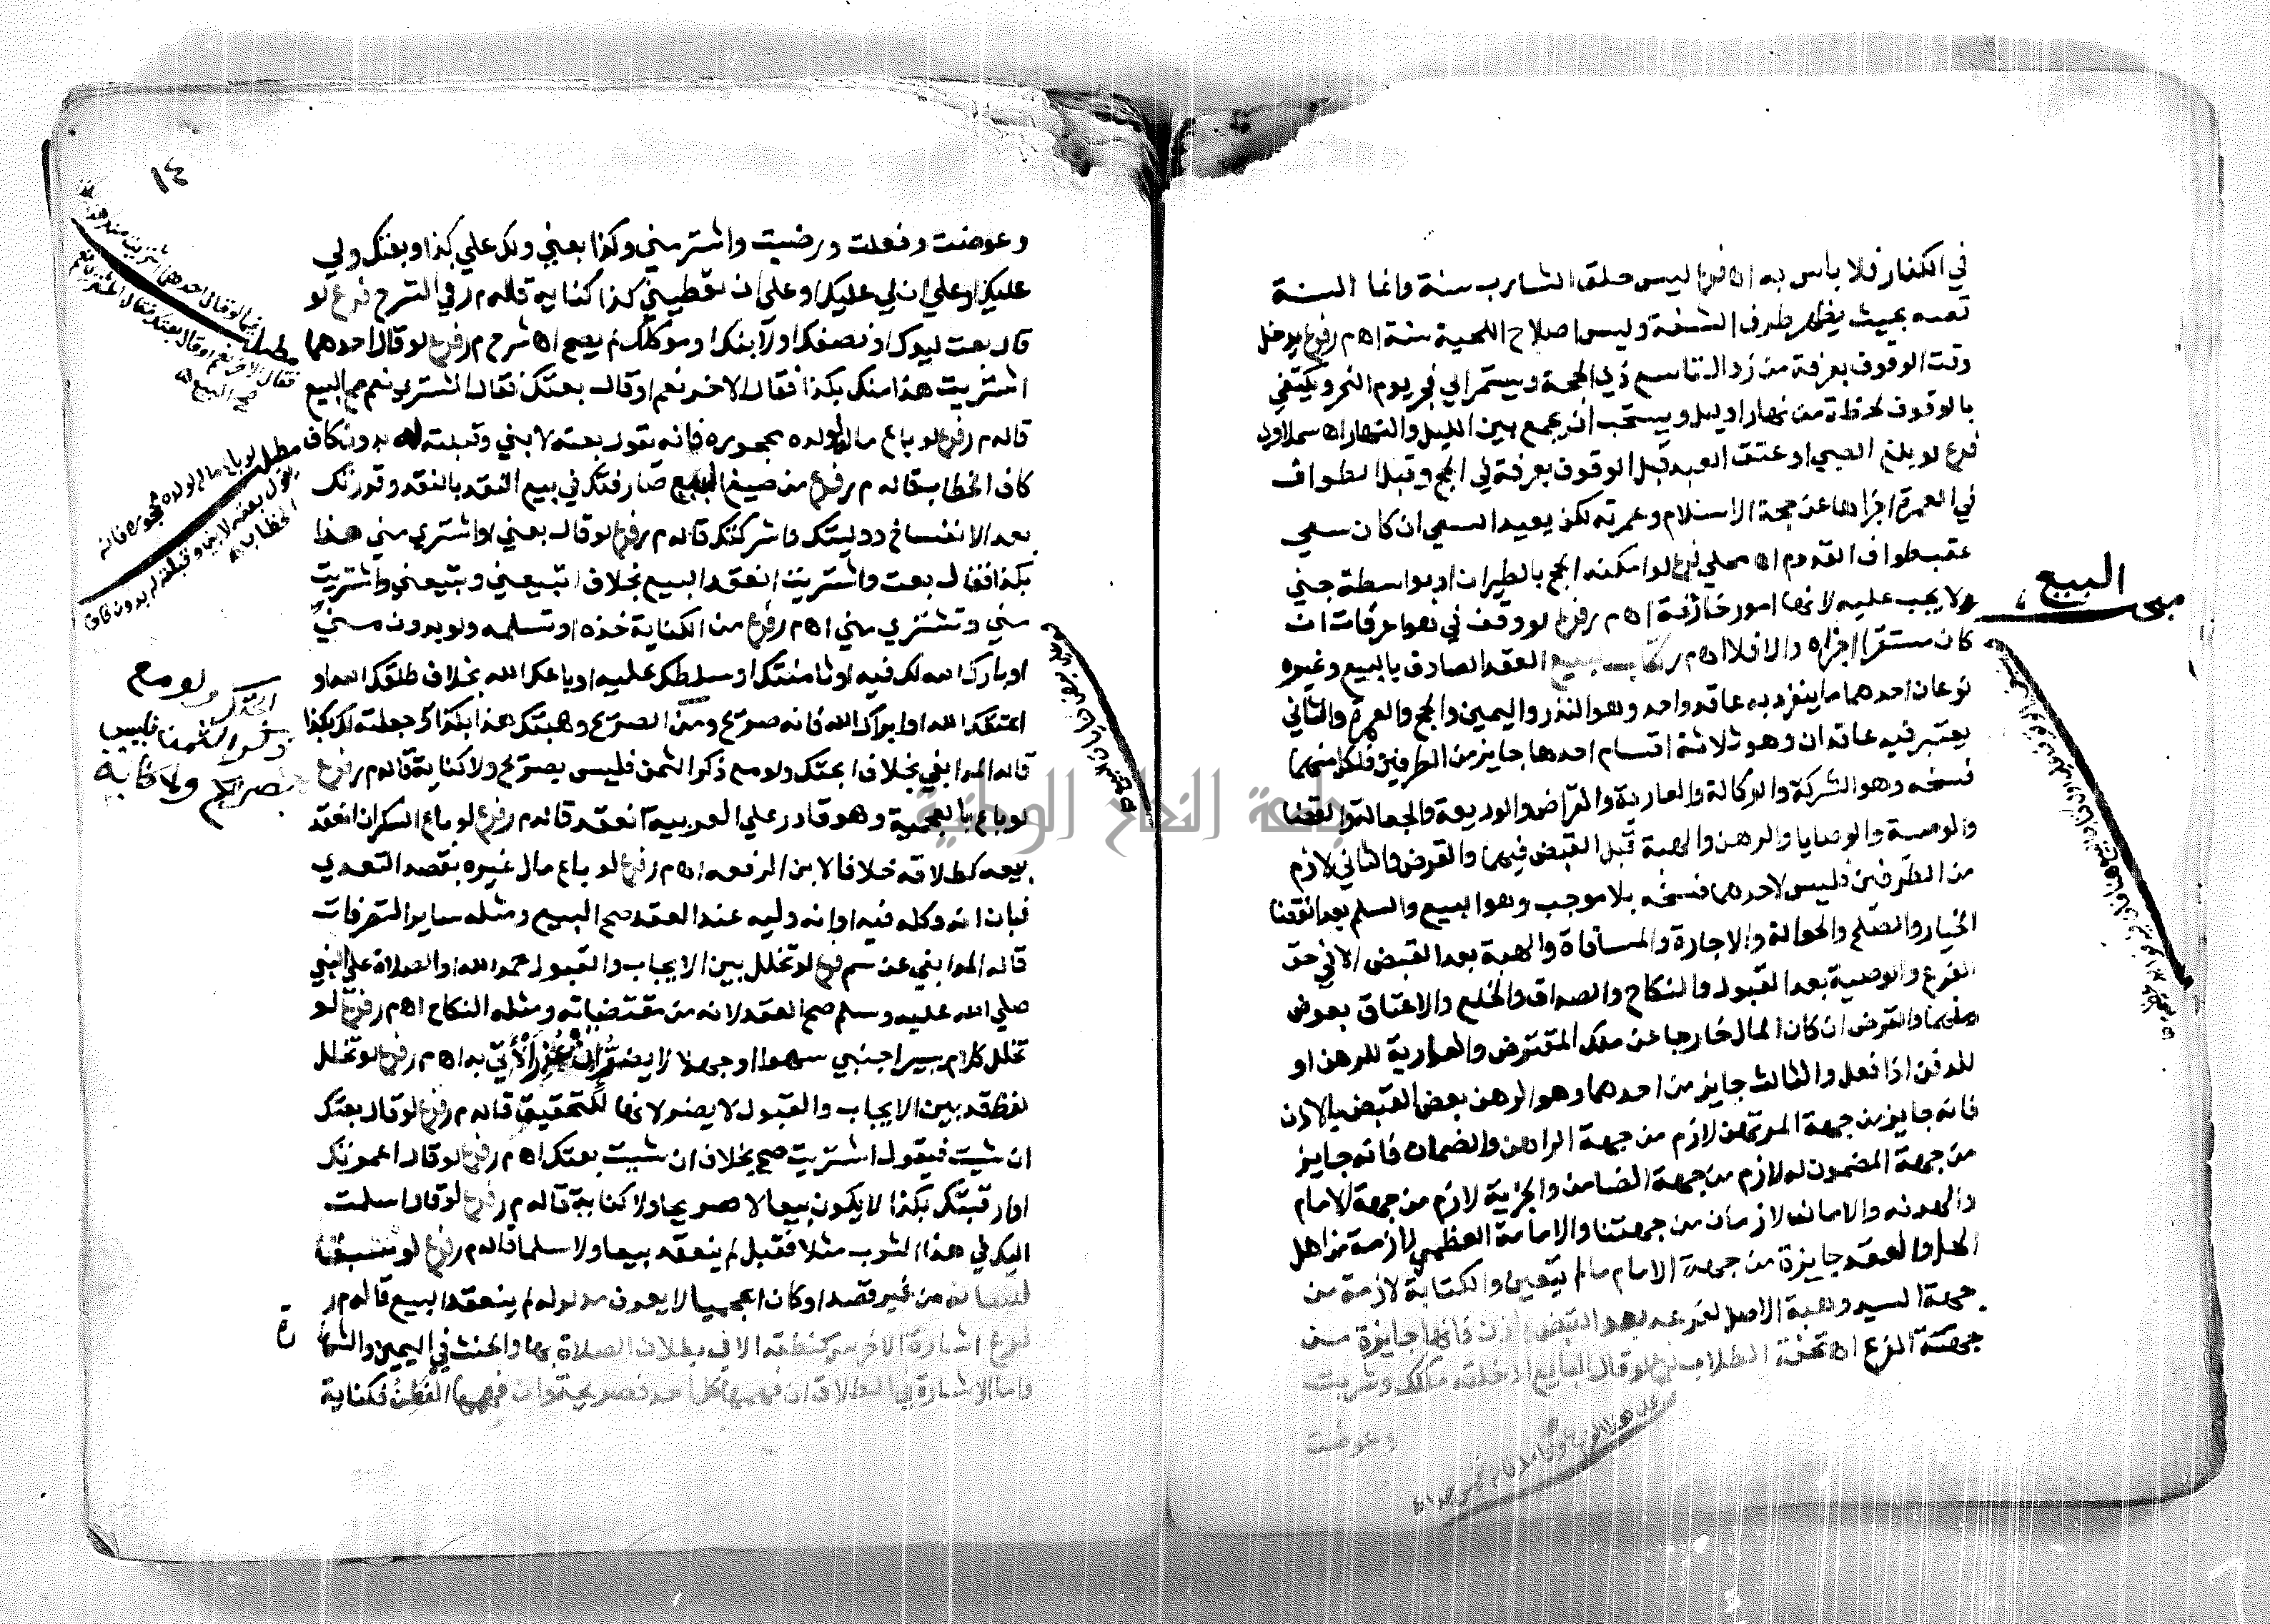 في الكفار فلا باس به اه فرع ليس حلق الشارب سنة وانما السنة
قصه بحيث يظهر طرف الشفة وليس اصلاح اللحية سنة اه م ر فرع يدخل
وقت الوقوف بعرفة من زوال تاسع ذي الحجة ويستمر الي فجر يوم النحر ويكتفي
بالوقوف لحظة من نهار او ليل ويستحب ان يجمع بين الليل والنهار اه
فرع لو بلغ الصبي او عتق العبد قبل الوقوف بعرفة في الحج وقبل الطواف
في العمرة اجزاها عن حجة الاسلام وعمرته لكن يعيد السعي ان كان سعي
عقب طواف القدوم اه محلي فرع لو امكنه الحج بالطيران او بواسطة جني
ولا يجب عليه لانها امور خارقة اه م ر فرع لو وقف في هوا عرفات ان
كان مستقرا اجزاه والا فلا اه م ر كتاب البيع العقد الصادق بالبيع وغيره
نوعان احدهما ما ينفرد به عاقد واحد وهو النذر واليمين والحج والعمرة والثاني
يعتبر فيه عاقدان وهو ثلاثة اقسام احدها جايز من الطرفين فلكل منهما
فسخه وهو الشركة والوكالة والعارية والقراض والوديعة والجعالة والقضا
والوصية والوصايا والرهن والهبة قبل القبض فيهما والقرض والثاني لازم
من الطرفين فليس لاحدهما فسخه بلا موجب وهو البيع والسلم بعد انقضا
الخيار والصلح والحوالة والاجارة والمساقاة والهبة بعد القبض الا في حق
الفرع والوصية بعد القبول والنكاح والصداق والخلع والاعتاق بعوض
والقرض ان كان المال خارجا عن ملك المقترض والعارية للرهن او
للدفن اذا فعل والثالث جايز من احدهما وهو الرهن بعض القبض بالاذن
فانه جايز من جهة المرتهن لازم من جهة الراهن والضمان فانه جايز
من جهة المضمون له لازم من جهة الضامن والجزية لازم من جهة الامام
والهدنه والامان لازمان من جهتنا والامامة العظمي لازمة من اهل
الحل والعقد جايزة من جهة الامام ما لم يتعين والكتابة لازمة من
جهة السيد وهبة الاصل لفرعه بعد القبض باذن فانها جايزة من
جهة الفرع اه تحفة الطلاب فرع لو قال البايع ادخلته ملكك وشريت
وعوضت
مبحث البيع
١٤
وعوضت وفعلت ورضيت واشتر مني وكذا بعني ولك علي كذا وبعتك ولي
عليك او علي ان لي عليك او علي ان تعطيني كذا كناية قاله م ر في الشرح فرع لو
قال بعت ليدك او نصفك او لابنك او موكلك لم يصح اه شرح م ر فرع لو قال احدهما
اشتريت هذا منك بكذا فقال الاخر نعم او قال بعتك فقال المشتري نعم صح البيع
قاله م ر فرع لو باع ماله لولده محجوره فانه يقول بعته لابني وقبلته له بدون كاف
كاف الخطاب قاله م ر فرع من صيغ البيع صارفتك في بيع النقد بالنقد وقررتك
بعد الانفساخ ووليتك واشركتك قاله م ر فرع لو قال بعني او اشتري مني هذا
بكذا فقال بعت واشتريت انعقد البيع بخلاف تبيعني وتبيعني واشتريت
مني وتشتري مني اه م ر فرع من الكناية خذه او تسلمه ولو بدون مني
او بارك الله لك فيه او ثامنتك او سلطتك عليه او باعك الله بخلاف طلقك الله او
اعتقك الله او ابراك الله فانه صريح ومن الصريح وهبتك هذا بكذا او جعلته لك بكذا
قاله المدابغي بخلاف ابحتك ولو مع ذكر الثمن فليس بصريح ولا كناية قاله م ر فرع
لو باع بالعجمية وهو قادر علي العربية انعقد قاله م ر فرع لو باع السكران انعقد
بيعه كطلاقه خلافا لابن الرفعه اه م ر فرع لو باع مال غيره بقصد التعدي
فبان انه وكله فيه او انه وليه عند العقد صح البيع ومثله ساير التصرفات
قاله المدابغي عن سم فرع لو تخلل بين الايجاب والقبول حمد الله والصلاة علي النبي
صلي الله عليه وسلم صح العقد لانه من مقتضياته ومثله النكاح اه م ر فرع لو
تخلل كلام يسير اجنبي سهوا او جهلا لا يضر ان عذر الآتي به اه م ر فرع لو تخلل
لفظ قد بين الايجاب والقبول لا يضر لانها للتحقيق قاله م ر فرع لو قال بعتك
ان شيت فيقول اشتريت صح بخلاف ان شيت بعتك اه م ر فرع لو قال اعمرتك
او ارقبتك بكذا لا يكون بيعا لا صريحا ولا كناية قاله م ر فرع لو قال اسلمت
اليك في هذا الثوب مثلا فقبل لم ينعقد بيعا ولا سلما قاله م ر فرع لو سبق
لسانه من غير قصد او كان اعجميا لا يعرف مدلوله لم ينعقد البيع قاله م ر
فرع اشارة الاخرس كنطقه الا في بطلان الصلاة بها والحنث في اليمين والشها
دة
واما الاشارة في الطلاق ان فهمها كل احد فصريحة وان فهمها الفطن فكناية
مطلب فيما لو قال احدهما اشتريت منك هذا
فقال الاخر نعم او قال بعتك فقال المشتري نعم
صح البيع
مطلب لو باع ماله لولده محجوره فانه
يقول بعته لابني وقبلته له بدون كاف
الخطاب
ابحتك ولو مع
ذكر الثمن فليس
بصريح ولا كناية
جامعة النجاح الوطنية